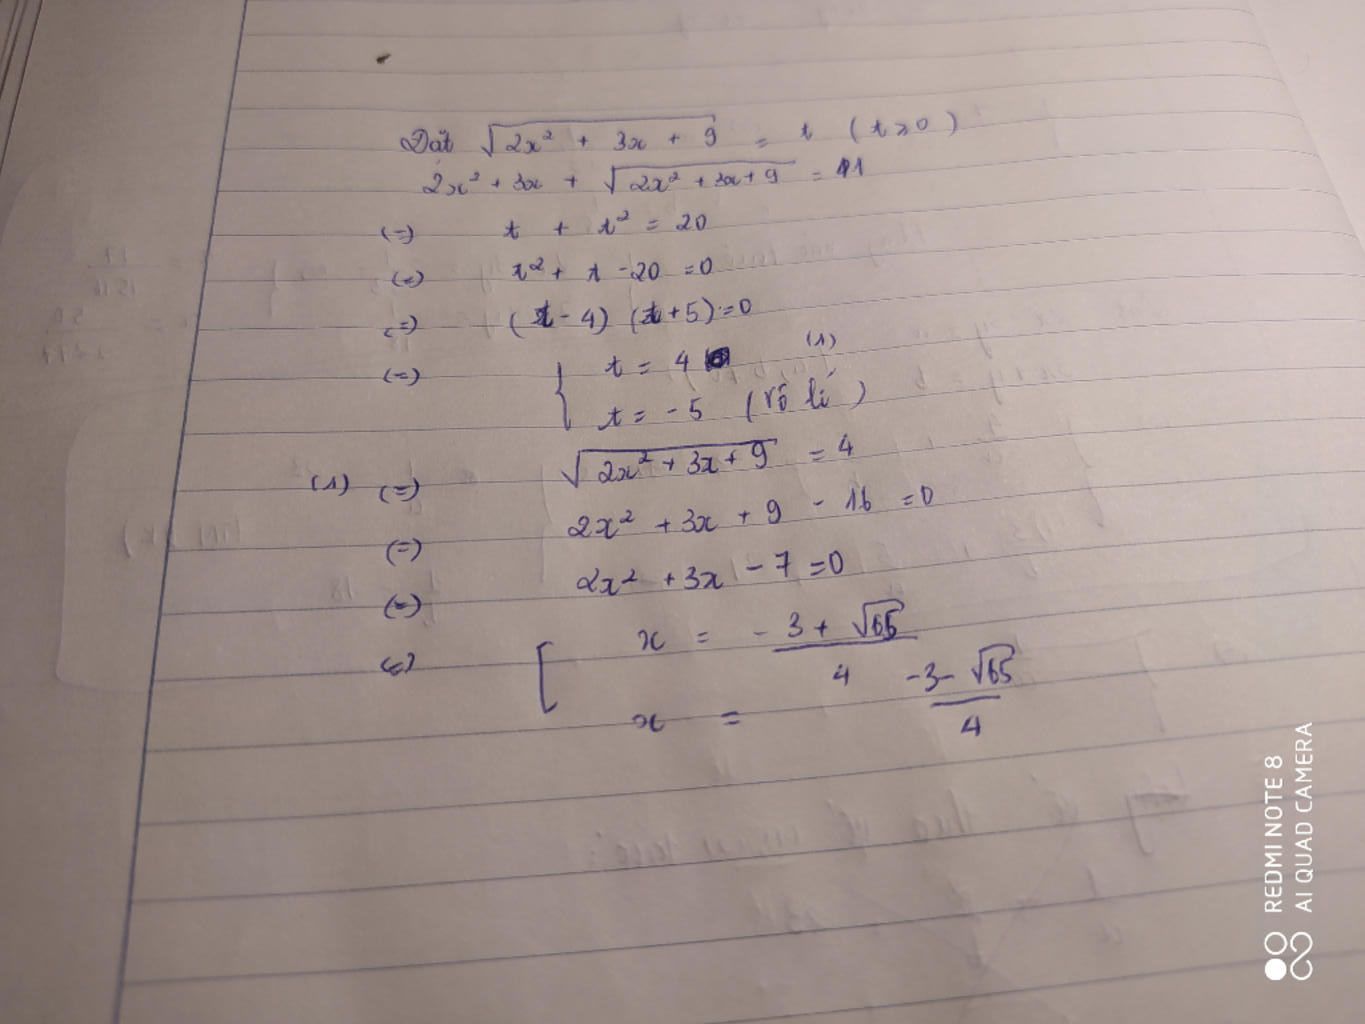 Đặt √(2x² + 3x + 9) = t (t ≥ 0)
2x² + 3x + √(2x² + 3x + 9) = 11
(=) t + t² = 20
(=) t² + t - 20 = 0
(=) (t - 4) (t + 5) = 0
(=) { t = 4 (1)
t = -5 (vô lí)
(1) (=) √(2x² + 3x + 9) = 4
(=) 2x² + 3x + 9 - 16 = 0
(=) 2x² + 3x - 7 = 0
(=) [ x = (-3 + √65)/4
x = (-3 - √65)/4
REDMI NOTE 8
AI QUAD CAMERA